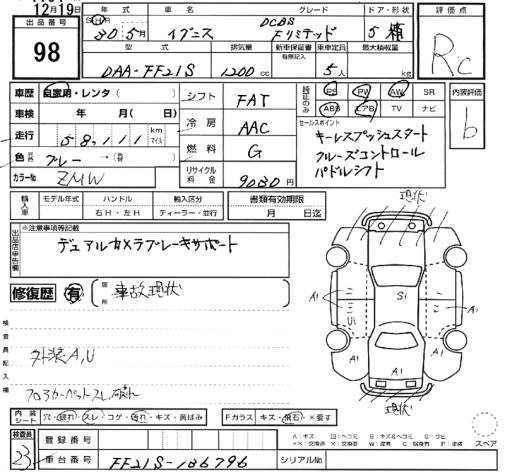 12月19日
出品番号
98
年式 車名 グレード ドア・形状
S・H・R 30年5月 イグニス DCBS Fリミテッド 5 箱
評価点
Rc
型式 排気量 新車保証書 有無記入 乗車定員 最大積載量
DAA-FF21S 1200 cc 5人 kg
車歴 自家用・レンタ( )
車検 年 月( 日)
走行 58,111 km マイル
色 元色 グレー →(替色 )
カラーNo ZMW
シフト FAT
冷房 AAC
燃料 G
リサイクル料金 9030円
純正のみ PS PW AW SR
ABS エアB TV ナビ
内装評価
b
セールスポイント
キーレスプッシュスタート
クルーズコントロール
パドルシフト
輸入車 モデル年式 ハンドル 輸入区分 書類有効期限
右H・左H ディーラー・並行 月 日迄
出品店申告欄
※注意事項等記載
デュアルカメラブレーキサポート
修復歴 有 箇所 事故現状
検査員記入欄
外装A,U
フロアカーペットスレ破れ
現状
A1 A1
U1
S1
A1 A1
現状
内装シート 穴・破れ・スレ・コゲ・汚れ・キズ・黄ばみ
Fガラス キズ・飛石・×要す
A:キズ U:ヘコミ B:キズ&ヘコミ S:サビ
××:交換済 ×:交換要 W:波有 C:腐食有 P:塗装
スペア
検査員
23
登録番号
車台番号 FF21S-186796 シリアルNo